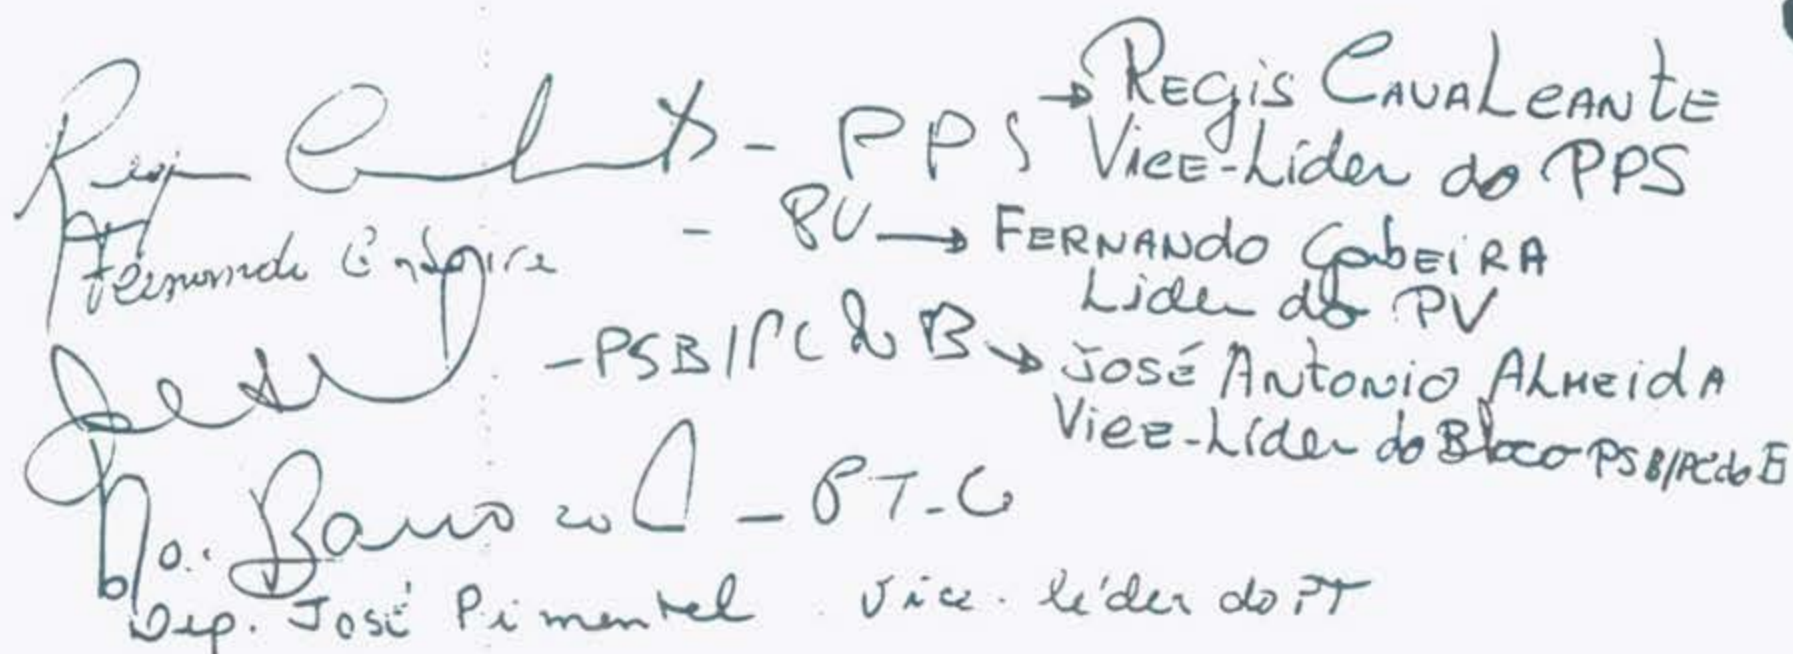 - PPS → REGIS CAVALCANTE
Vice-Líder do PPS
- PV → FERNANDO GABEIRA
Líder do PV
- PSB/PC do B → JOSÉ ANTONIO ALMEIDA
Vice-Líder do Bloco PSB/PCdoB
- PT-C
Dep. José Pimentel Vice-líder do PT